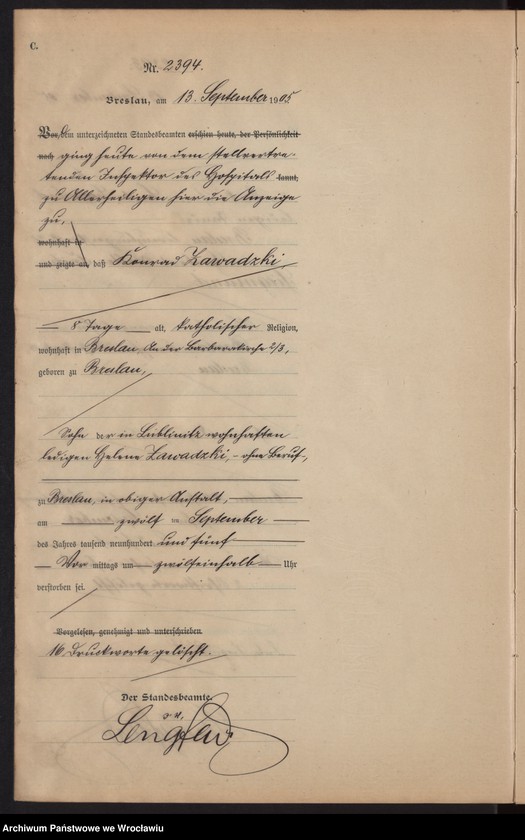 C.
Nr. 2394.
Breslau, am 13. September 1905.
Vor dem unterzeichneten Standesbeamten erschien heute, der Persönlichkeit
nach ging heute von dem stellvertre-
tenden Inspektor des Hospitals kannt,
zu Allerheiligen hier die Anzeige
zu,
wohnhaft in
und zeigte an, daß Konrad Zawadzki,
8 Tage alt, katholischer Religion,
wohnhaft in Breslau, An der Barbarakirche 2/3,
geboren zu Breslau,
Sohn der in Lublinitz wohnhaften
ledigen Helene Zawadzki, - ohne Beruf -,
zu Breslau, in obiger Anstalt,
am zwölf ten September
des Jahres tausend neunhundert und fünf
Vor mittags um zwölfeinhalb Uhr
verstorben sei.
Vorgelesen, genehmigt und unterschrieben.
16 Druckworte gelöscht.
Der Standesbeamte.
Archiwum Państwowe we Wrocławiu